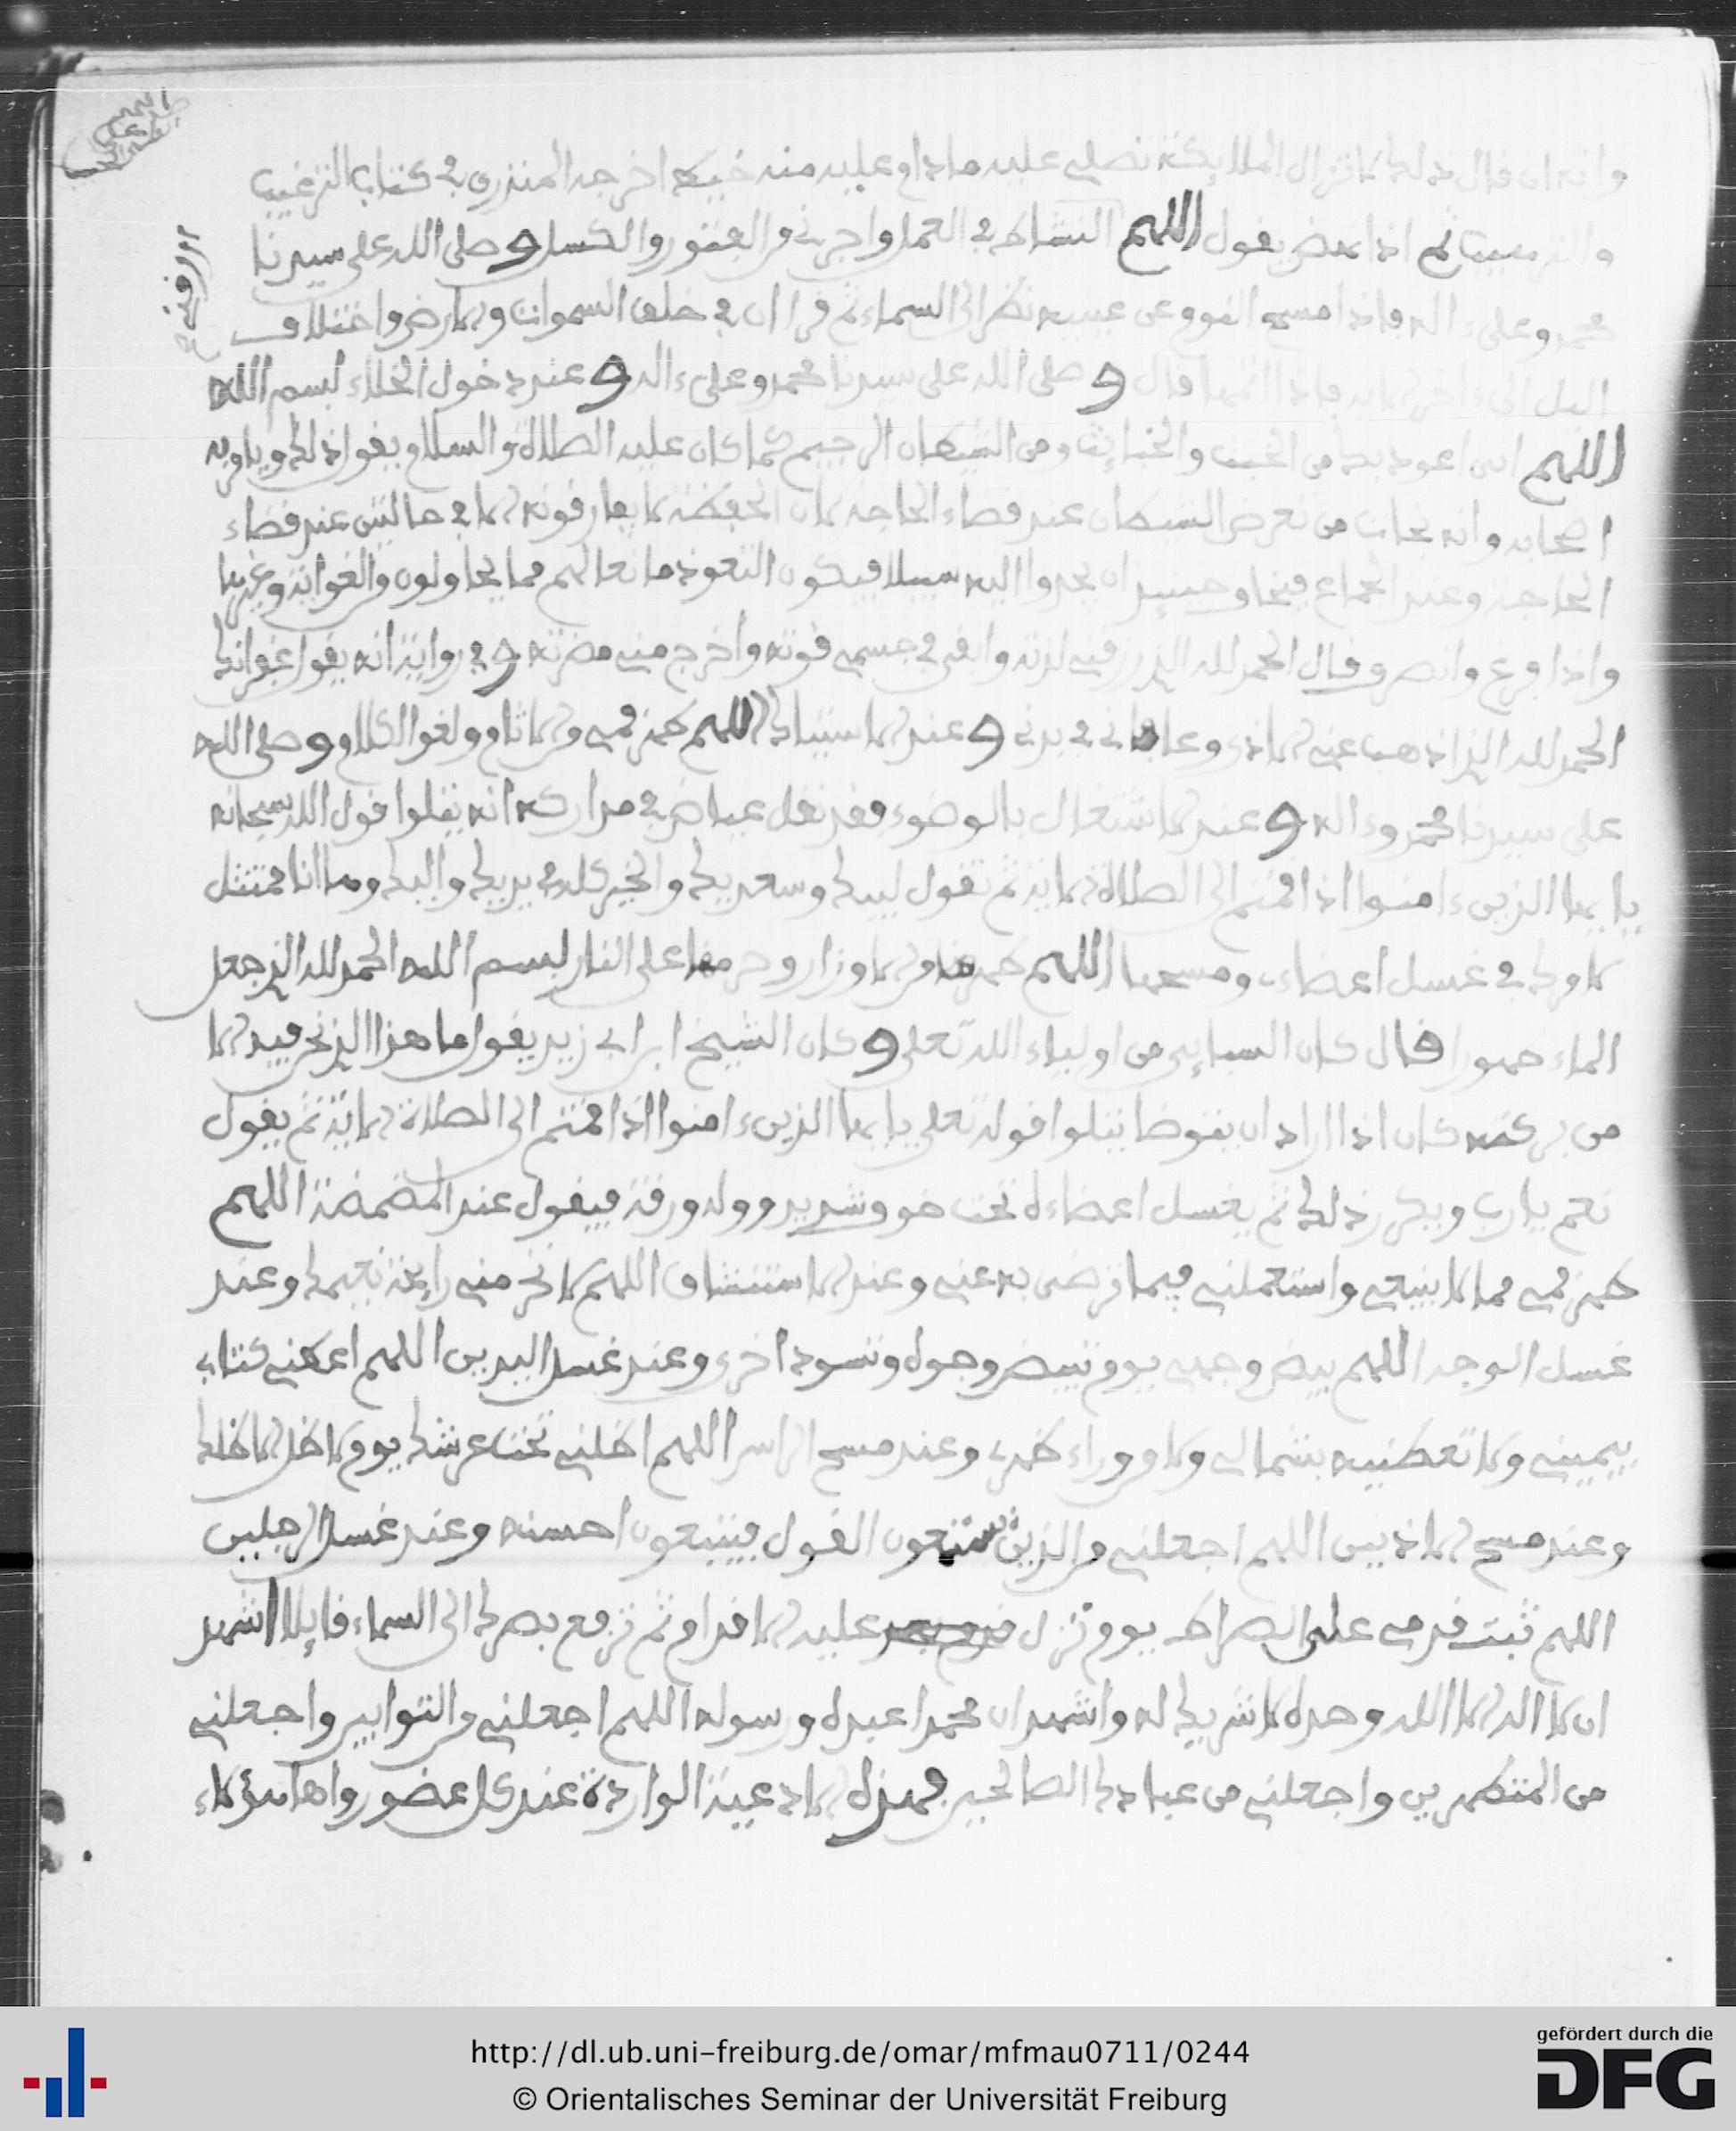 وانه ان قال ذلك لا تزال الملايكة تصلي عليه ما دام عليه منه خيط اخرجه المنذري في كتاب الترغيب
والترهيب ثم اذا نهض يقول اللهم النشاط في العمل واجرني من الفتور والكسل وصلى الله على سيدنا
محمد وعلىءاله فاذا مسح النوم عن عينيه نظر الى السماء ثم قرا ان في خلق السموات والارض واختلاف
اليل الىءاخر الاية فاذا اتمها قال وصلى الله على سيدنا محمد وعلىءاله وعند دخول الخلاء لبسم الله
اللهم اني اعوذ بك من الخبث والخبايث ومن الشيطان الرجيم كما كان عليه الصلاة والسلام يقول ذلك ويامر به
اصحابه وانه نجات من تعرض الشيطان عند قضاء الحاجة لان الحفظة لا يفارقونه الا في حالتين عند قضاء
الحاجة وعند الجماع فيخاف حينيذ ان يجدوا اليه سبيلا فيكون التعوذ مانعا لهم مما يحاولون من الغواية وغيرها
واذا فرغ وانصرف قال الحمد لله الذي رزقني لذته وابقى في جسمي قوته واخرج مني مضرته وفي رواية انه يقول غفرانك
الحمد لله الذي اذهب عني الاذى وعافاني في بدني وعند الاستياك اللهم طهر فمي من الاثام ولغو الكلام وصلى الله
على سيدنا محمد وءاله وعند الاشتغال بالوضوء فقد نقل عياض في مداركه انه يتلوا قول الله سبحانه
يا ايها الذينءامنوا اذا قمتم الى الصلاة الاية ثم تقول لبيك وسعديك والخير كله في يديك واليك وها انا ممتثل
لامرك في غسل اعضاء ومسحها اللهم طهرنا من الاوزار وحرمنا على النار لبسم الله الحمد لله الذي جعل
الماء طهورا قال كان السبايي من اولياء الله تعلى وكان الشيخ ابن ابي زيد يقول ما هذا الذي نحن فيه الا
من بركته كان اذا اراد ان يتوضا يتلوا قوله تعلى يا ايها الذينءامنوا اذا قمتم الى الصلاة الاية ثم يقول
نعم يا رب ويكرر ذلك ثم يغسل اعضاءه تحت خوف شديد وله ورقة فيقول عند المضمضة اللهم
طهر فمي مما لا ينبغي واستعملني فيما ترضى به عني وعند الاستنشاق اللهم لا تحرمني رايحة نعيمك وعند
غسل الوجه اللهم بيض وجهي يوم تبيض وجوه وتسود اخرى وعند غسل اليدين اللهم اعطني كتابي
بيميني ولا تعطنيه بشمالي ولا من وراء ظهري وعند مسح الراس اللهم اظلني تحت عرشك يوم لا ظل الا ظلك
وعند مسح الاذنين اللهم اجعلني من الذين يستمعون القول فيتبعون احسنه وعند غسل الرجلين
اللهم ثبت قدمي على الصراط يوم تزل عليه الاقدام ثم ترفع بصرك الى السماء قايلا اشهد
ان لا اله الا الله وحده لا شريك له واشهد ان محمدا عبده ورسوله اللهم اجعلني من التوابين واجعلني
من المتطهرين واجعلني من عبادك الصالحين فهذه الادعية الواردة عند كل عضو رواها هؤلاء
http://dl.ub.uni-freiburg.de/omar/mfmau0711/0244
© Orientalisches Seminar der Universität Freiburg
gefördert durch die
DFG